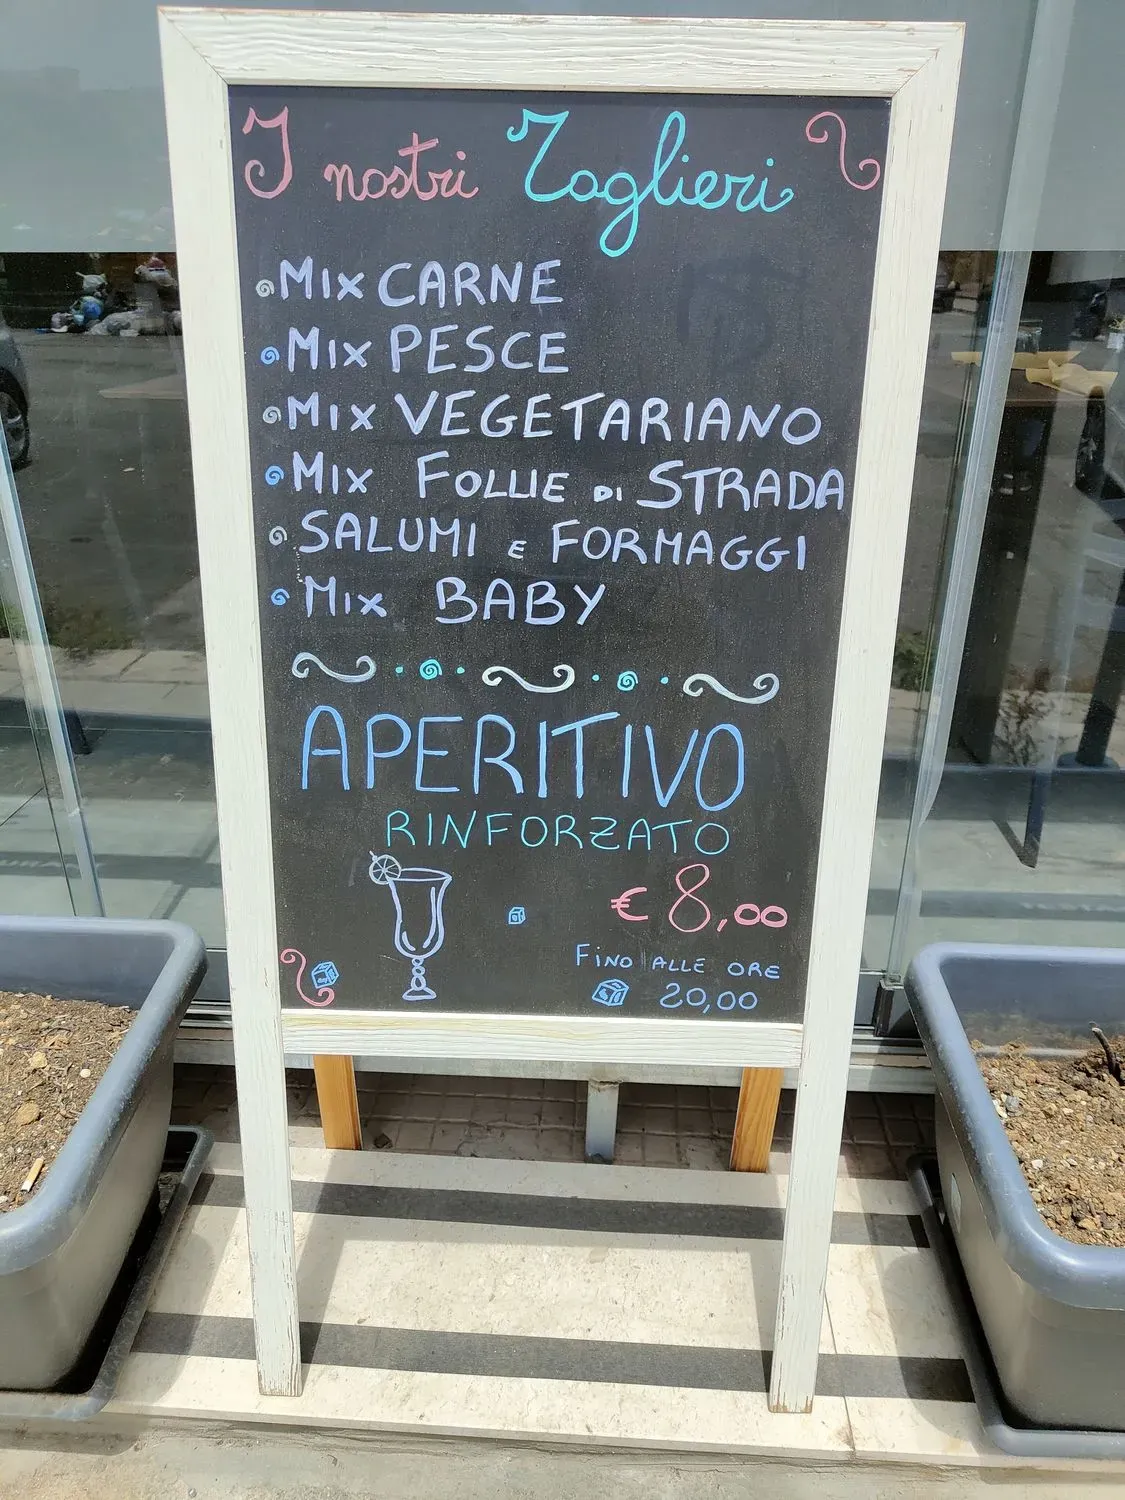 I nostri Taglieri
MIX CARNE
MIX PESCE
MIX VEGETARIANO
MIX FOLLIE DI STRADA
SALUMI E FORMAGGI
MIX BABY
APERITIVO
RINFORZATO
€ 8,00
FINO ALLE ORE
20,00